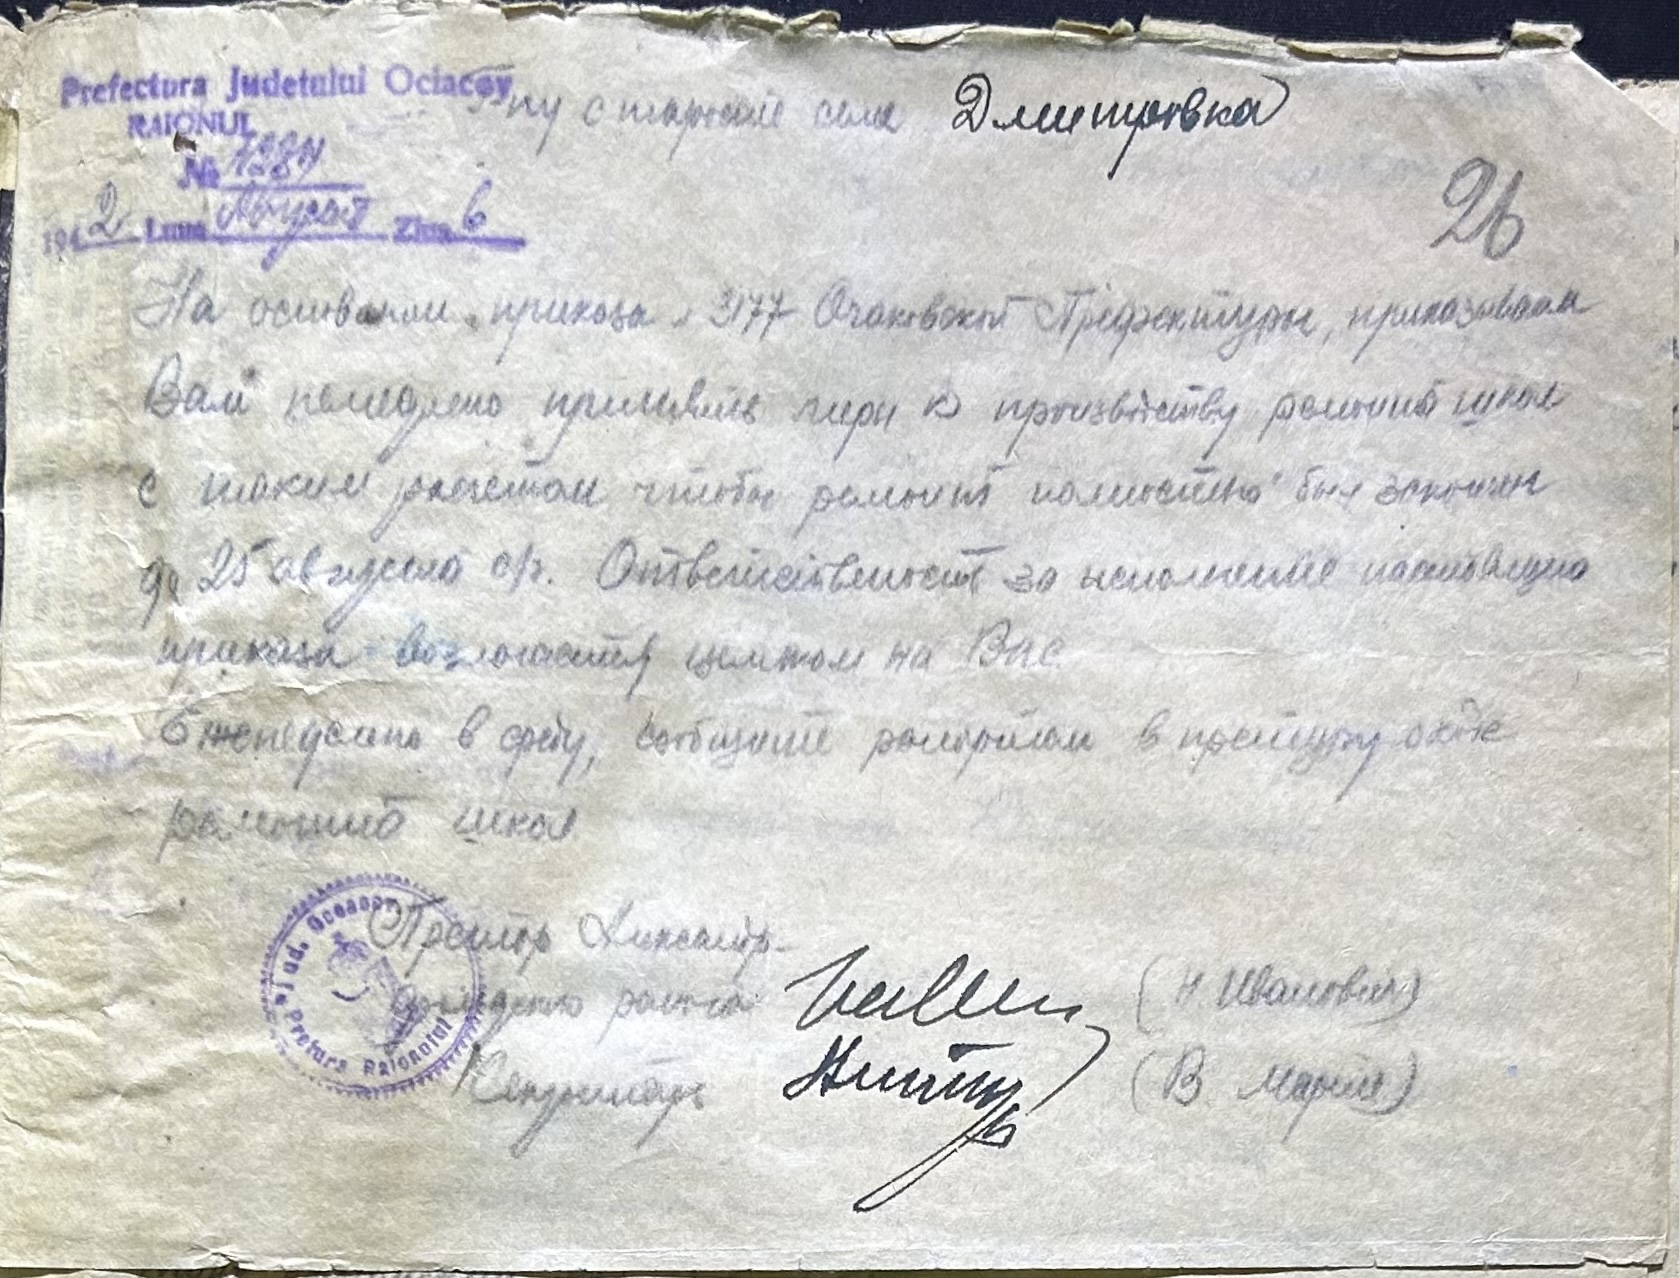 Prefectura Judetului Ociacov
RAIONUL
Г-ну старосте села Дмитровка
№ 1284
1942 Luna Август Ziua 6
26
На основании приказа 3177 Очаковской Префектуры, приказываю
Вам немедлено принять меры к производству ремонта школ
с таким расчетом чтобы ремонт полностью был закончен
до 25 августа с/г. Ответственость за исполнение настоящего
приказа возлогается целиком на Вас
Еженедельно в среду, сообщите рапортом в претуру о ходе
ремонта школ
Претор Александр-
дарского района
(Н. Иванович)
Секретарь
(В. Мария)
Jud. Oceacov
Pretura Raionului